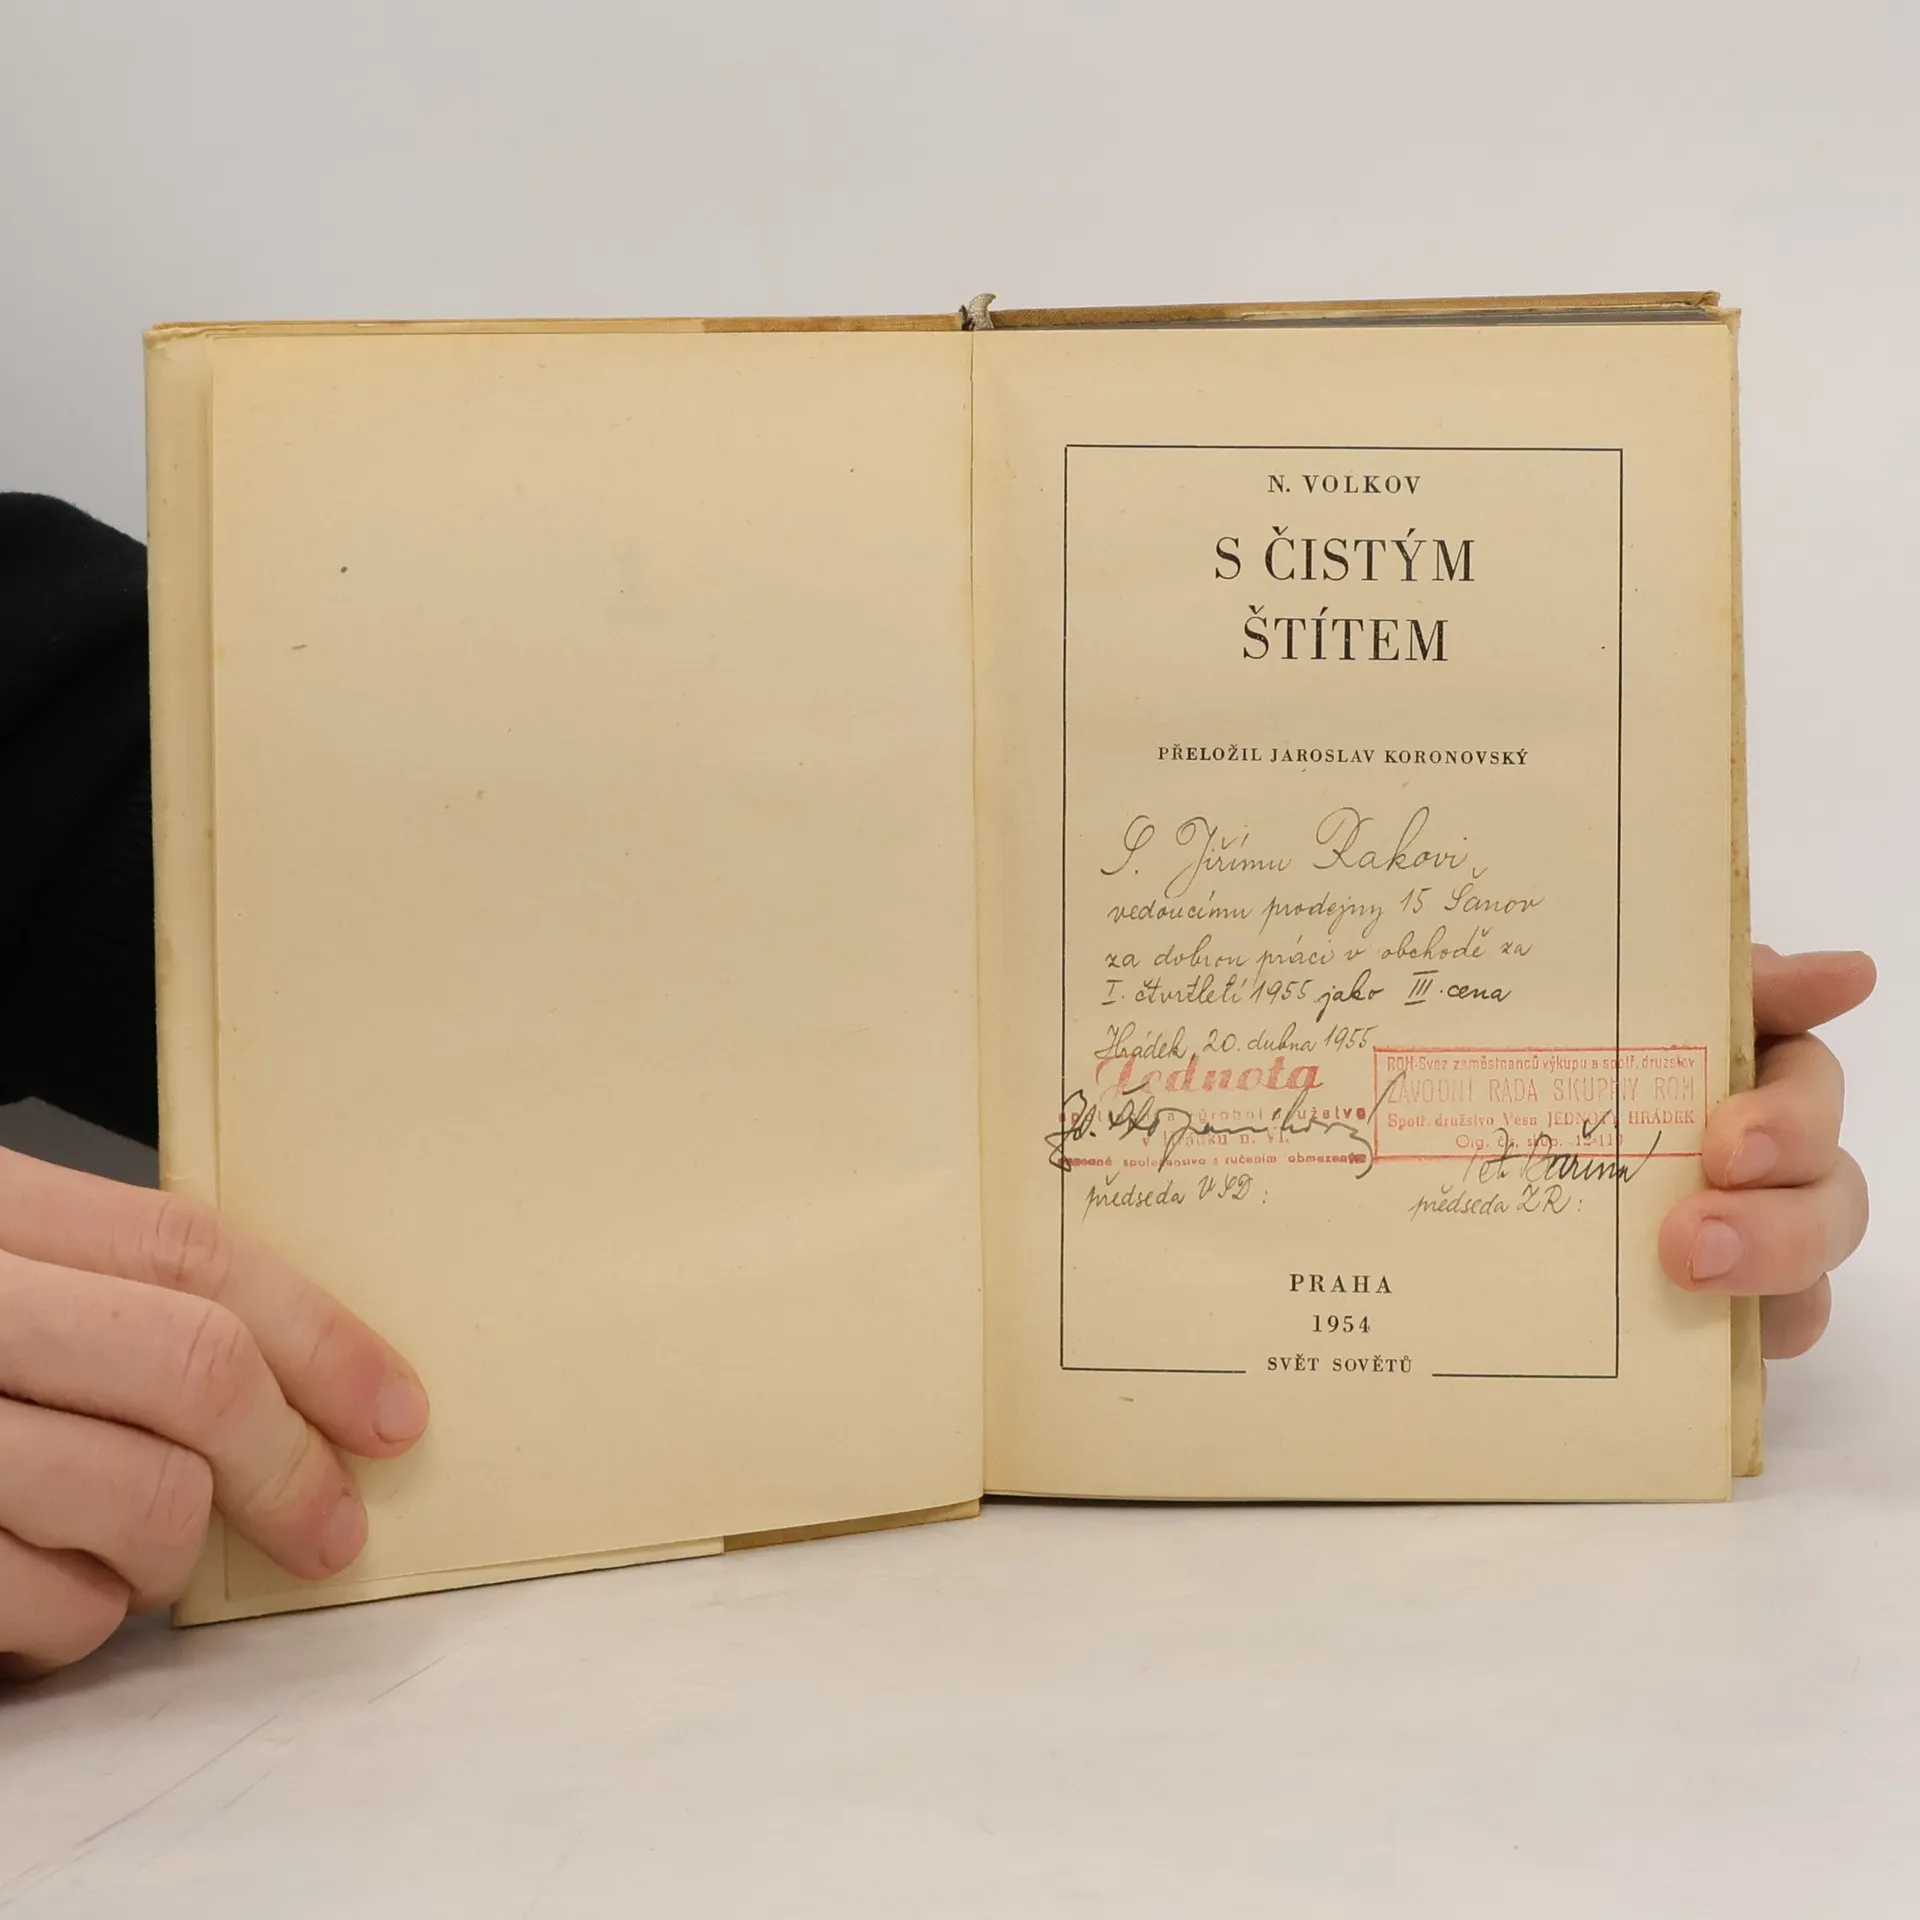 N. VOLKOV
S ČISTÝM
ŠTÍTEM
PŘELOŽIL JAROSLAV KORONOVSKÝ
S. Jiřímu Rakovi,
vedoucímu prodejny 15 Šanov
za dobrou práci v obchodě za
I. čtvrtletí 1955 jako III. cena
Hrádek, 20. dubna 1955
Jednota
družstvo
v Hrádku n. Vl.
společenstvo s ručením obmezeným
předseda VSD:
ROH-Svaz zaměstnanců výkupu a spotř. družstev
ZÁVODNÍ RADA SKUPINY ROH
Spotř. družstvo Vesn JEDNOTY HRÁDEK
Org. čís. skup. 12-119
předseda ZR:
PRAHA
1954
SVĚT SOVĚTŮ